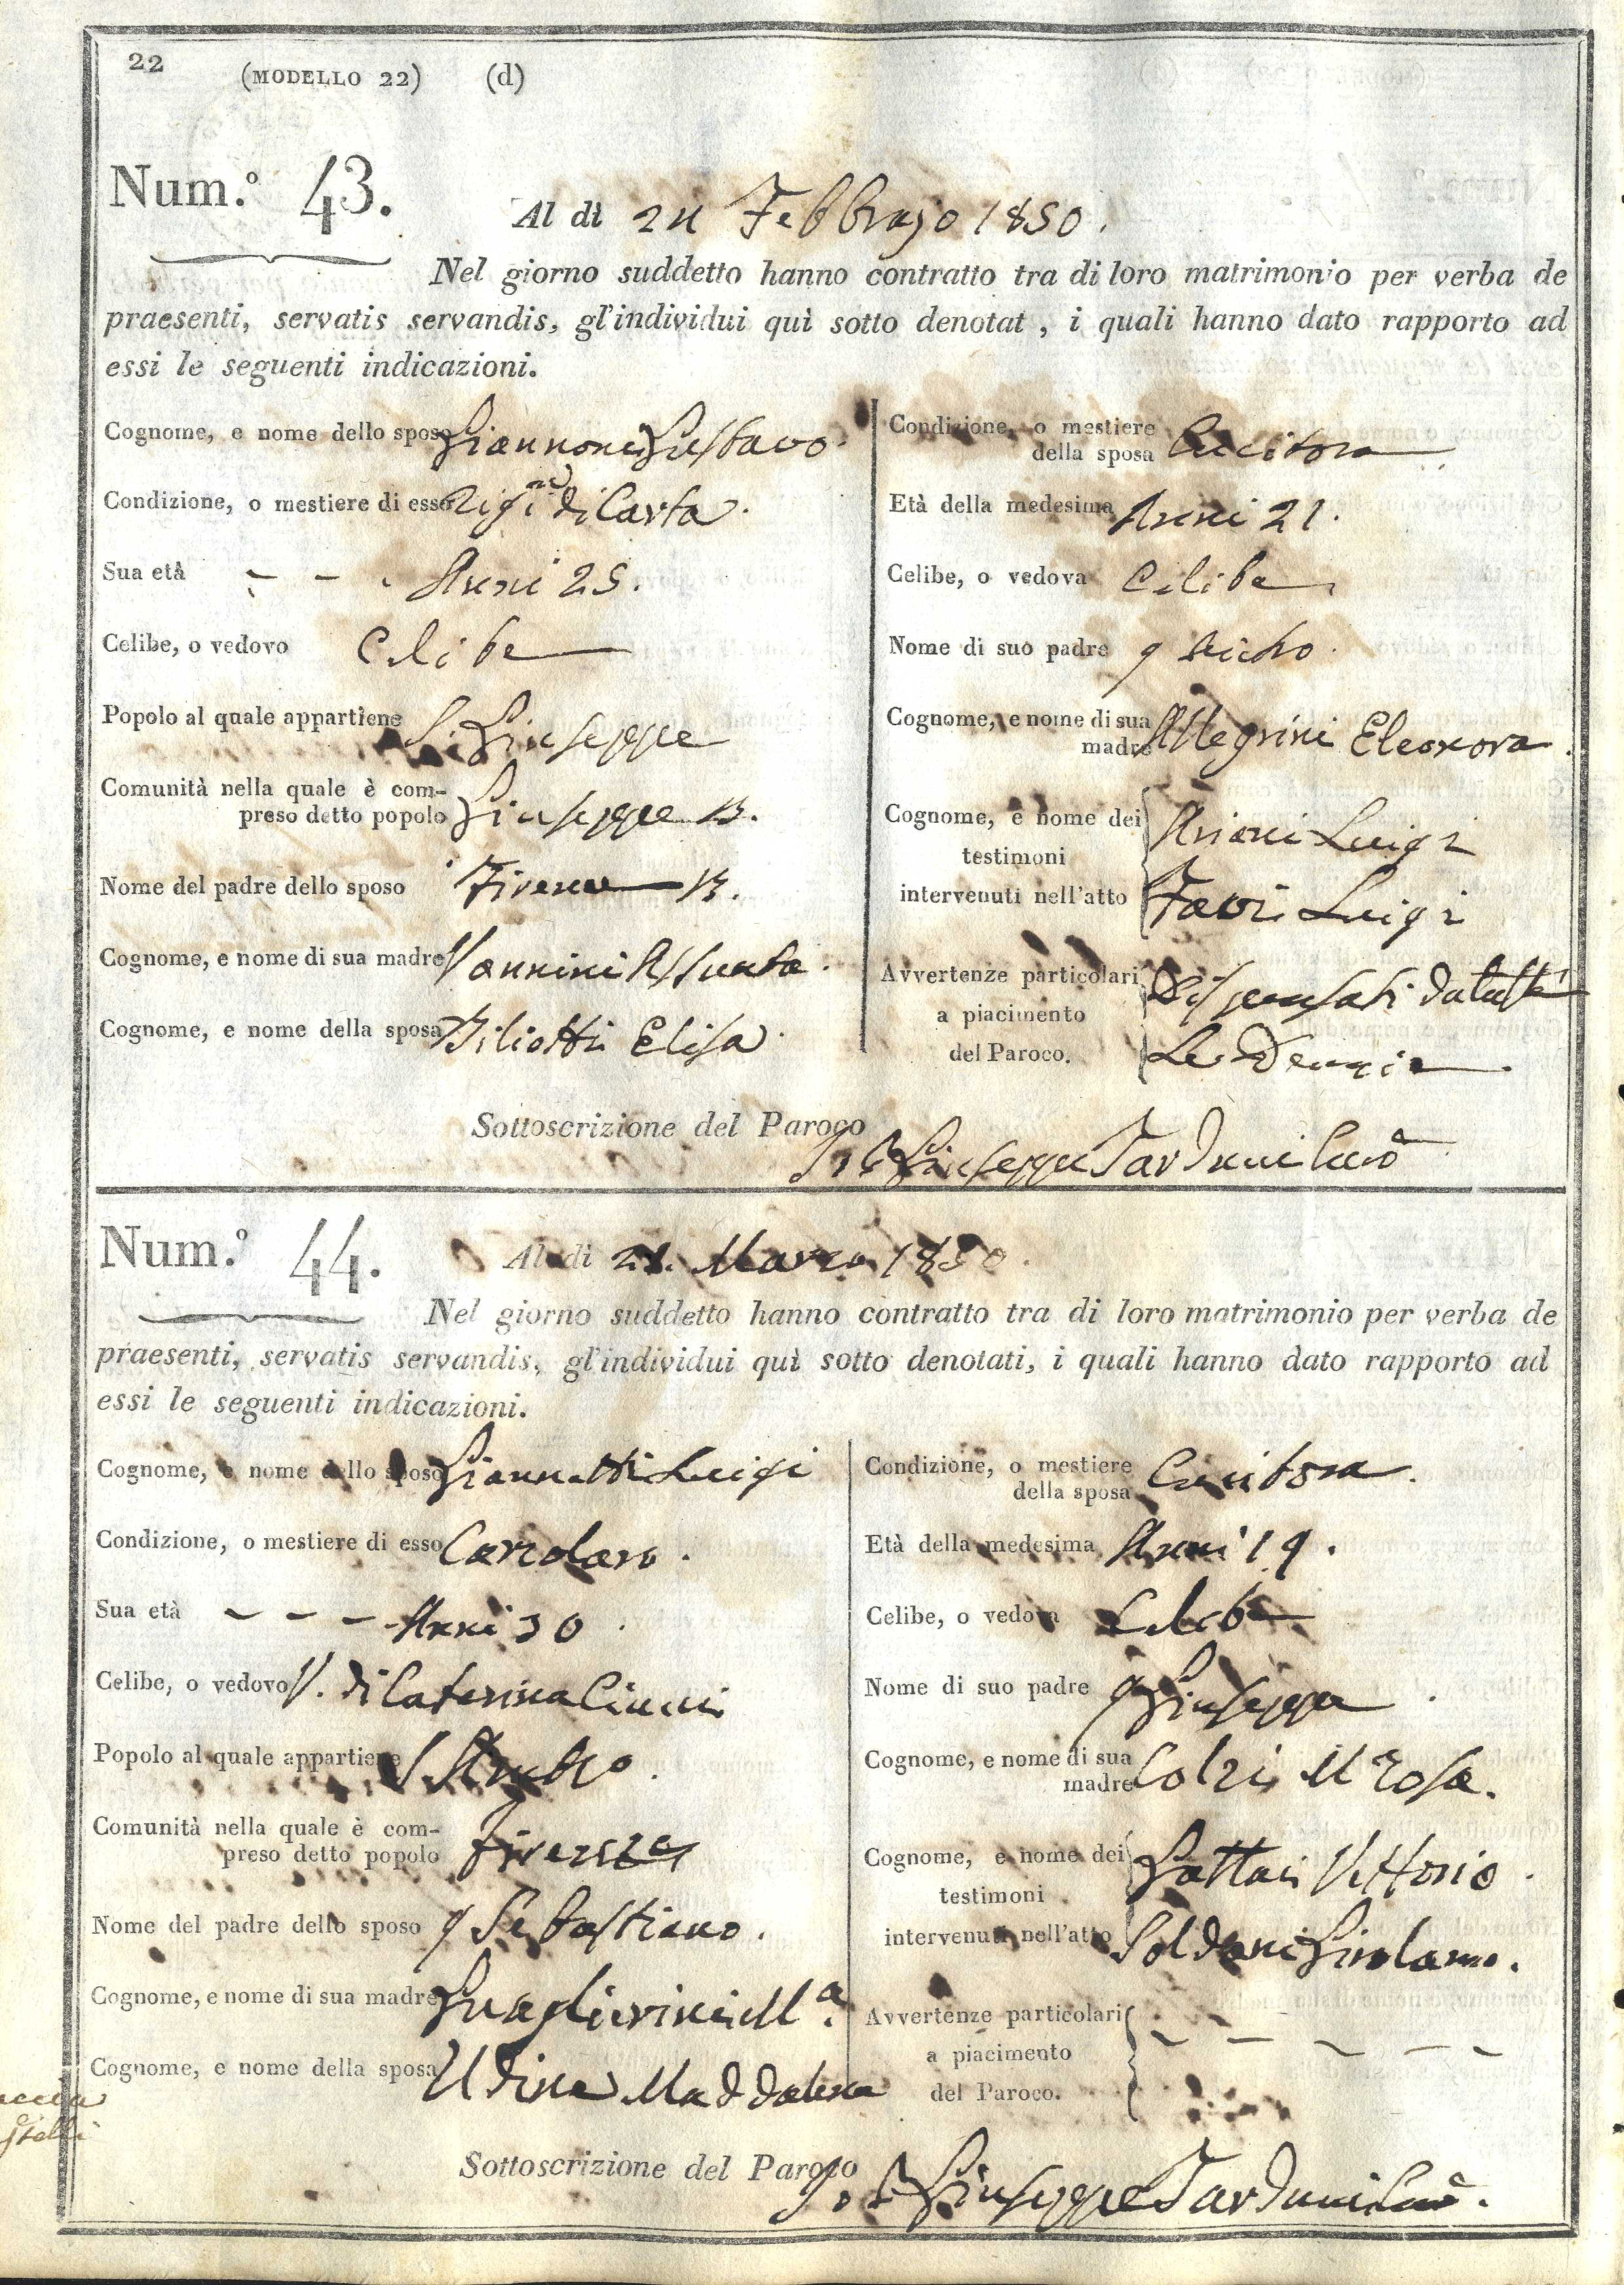 22 (MODELLO 22) (d)
Num.º 43.
Al dì Febbrajo 1850.
Nel giorno suddetto hanno contratto tra di loro matrimonio per verba de
praesenti, servatis servandis, gl'individui quì sotto denotat , i quali hanno dato rapporto ad
essi le seguenti indicazioni.
Cognome, e nome dello sposo Giannoni Gustavo.
Condizione, o mestiere di esso di Carta.
Sua età - - - Anni 25.
Celibe, o vedovo Celibe
Popolo al quale appartiene S. Giuseppe
Comunità nella quale è com-
preso detto popolo Giuseppe B.
Nome del padre dello sposo Firenze B.
Cognome, e nome di sua madre Vannini Assunta.
Cognome, e nome della sposa Biliotti Elisa.
Condizione, o mestiere
della sposa Cucitora
Età della medesima Anni 21.
Celibe, o vedova Celibe
Nome di suo padre q
Cognome, e nome di sua
madre Allegrini Eleonora.
Cognome, e nome dei Luigi
testimoni
intervenuti nell'atto Favi Luigi
Avvertenze particolari Dispensati da tutte
a piacimento
del Paroco. Le Denunzie
Sottoscrizione del Paroco
Giuseppe Tarduni Curº
Num.º 44.
Al dì 21. Marzo 1850.
Nel giorno suddetto hanno contratto tra di loro matrimonio per verba de
praesenti, servatis servandis, gl'individui quì sotto denotati, i quali hanno dato rapporto ad
essi le seguenti indicazioni.
Cognome, e nome dello sposo Giannetti Luigi
Condizione, o mestiere di esso
Sua età - - - Anni 30
Celibe, o vedovo V. di Caterina
Popolo al quale appartiene S.
Comunità nella quale è com-
preso detto popolo Firenze
Nome del padre dello sposo q Sebastiano.
Cognome, e nome di sua madre Guaglierini Mª.
Cognome, e nome della sposa Udine Maddalena
Condizione, o mestiere
della sposa Cucitora.
Età della medesima Anni 19.
Celibe, o vedova Celibe
Nome di suo padre q Giuseppe.
Cognome, e nome di sua
madre Colzi Mª Rosa.
Cognome, e nome dei Gattai Vittorio.
testimoni
intervenuti nell'atto Soldani Girolamo.
Avvertenze particolari
a piacimento - - - - -
del Paroco.
Sottoscrizione del Paroco
Giuseppe Tarduni Curº.